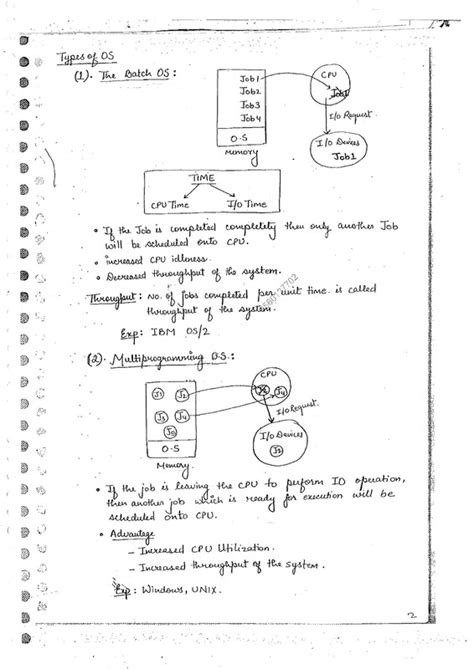 Types of OS
(1). The Batch OS :
Job1
Job2
Job3
Job4
O.S
Memory
CPU
Job1
I/O Request
I/O Devices
Job1
TIME
CPU Time I/O Time
• If the Job is completed completely then only another Job
will be scheduled onto CPU.
• increased CPU idleness.
• Decreased throughput of the system.
Throughput : No. of jobs completed per unit time is called
throughput of the system.
Exp: IBM OS/2
(2). Multiprogramming O.S :
J1 J2
J3 J4
J5
O.S
Memory
CPU
J4
I/O Request.
I/O Devices
J2
• If the job is leaving the CPU to perform IO operation,
then another job which is ready for execution will be
scheduled onto CPU.
• Advantage
– Increased CPU Utilization.
– Increased throughput of the system.
Exp: Windows, UNIX.
2